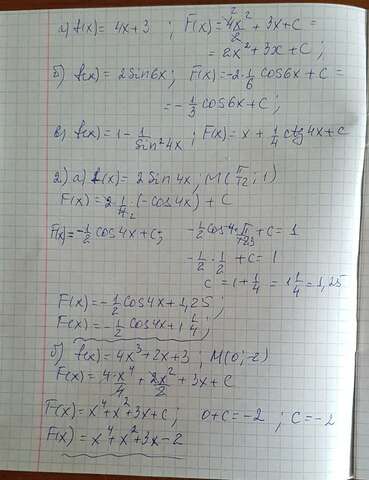 а) f(x) = 4x+3 ; F(x) = 4x²/2 + 3x + C =
= 2x² + 3x + C ;
б) f(x) = 2sin6x ; F(x) = -2·1/6 cos6x + C =
= -1/3 cos6x + C ;
в) f(x) = 1 - 1/sin²4x ; F(x) = x + 1/4 ctg4x + C
2) а) f(x) = 2sin4x , M(π/12 ; 1)
F(x) = 2·1/4·(-cos4x) + C
F(x) = -1/2 cos4x + C ; -1/2 cos4·π/12 + C = 1
-1/2·1/2 + C = 1
C = 1 + 1/4 = 1 1/4 = 1,25
F(x) = -1/2 cos4x + 1,25 ;
F(x) = -1/2 cos4x + 1 1/4 ;
б) f(x) = 4x³ + 2x + 3 ; M(0; -2)
F(x) = 4·x⁴/4 + 2x²/2 + 3x + C
F(x) = x⁴ + x² + 3x + C ; 0 + C = -2 ; C = -2
F(x) = x⁴ + x² + 3x - 2